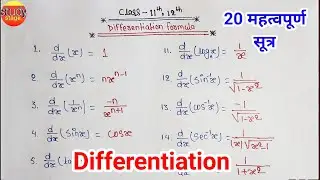 STUDY STAGE
Class-11th, 12th
Differentiation formula
20 महत्वपूर्ण
सूत्र
1. d/dx (x) = 1
2. d/dx (xⁿ) = nxⁿ⁻¹
3. d/dx (1/xⁿ) = -n/xⁿ⁺¹
4. d/dx (sinx) = cosx
5.
11. d/dx (logx) = 1/x
12. d/dx (sin⁻¹x) = 1/√1-x²
13. d/dx (cos⁻¹x) = -1/√1-x²
14. d/dx (sec⁻¹x) = 1/|x|√x²-1
1/1+x²
Differentiation